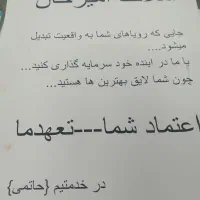 جایی که رویاهای شما به واقعیت تبدیل
میشود....
با ما در اینده خود سرمایه گذاری کنید...
چون شما لایق بهترین ها هستید...
اعتماد شما---تعهدما
در خدمتیم {حاتمی}